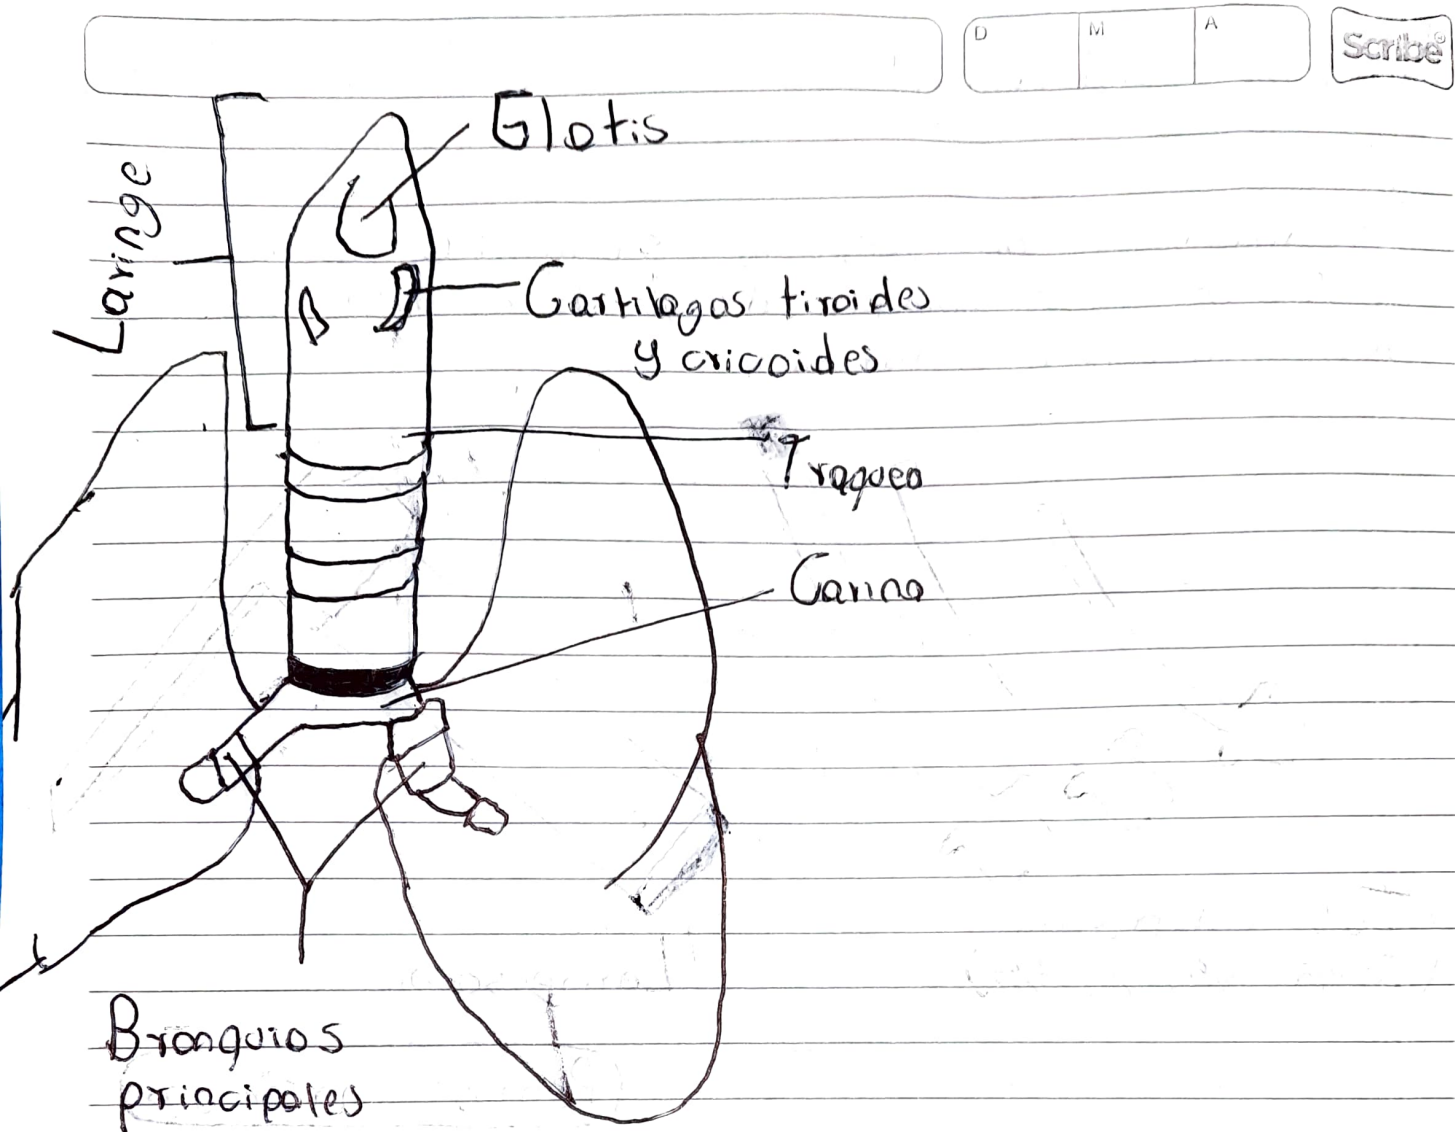 D M A Scribe
Glotis
Laringe
Cartilagos tiroides
y cricoides
Traquea
Carina
Bronquios
principales